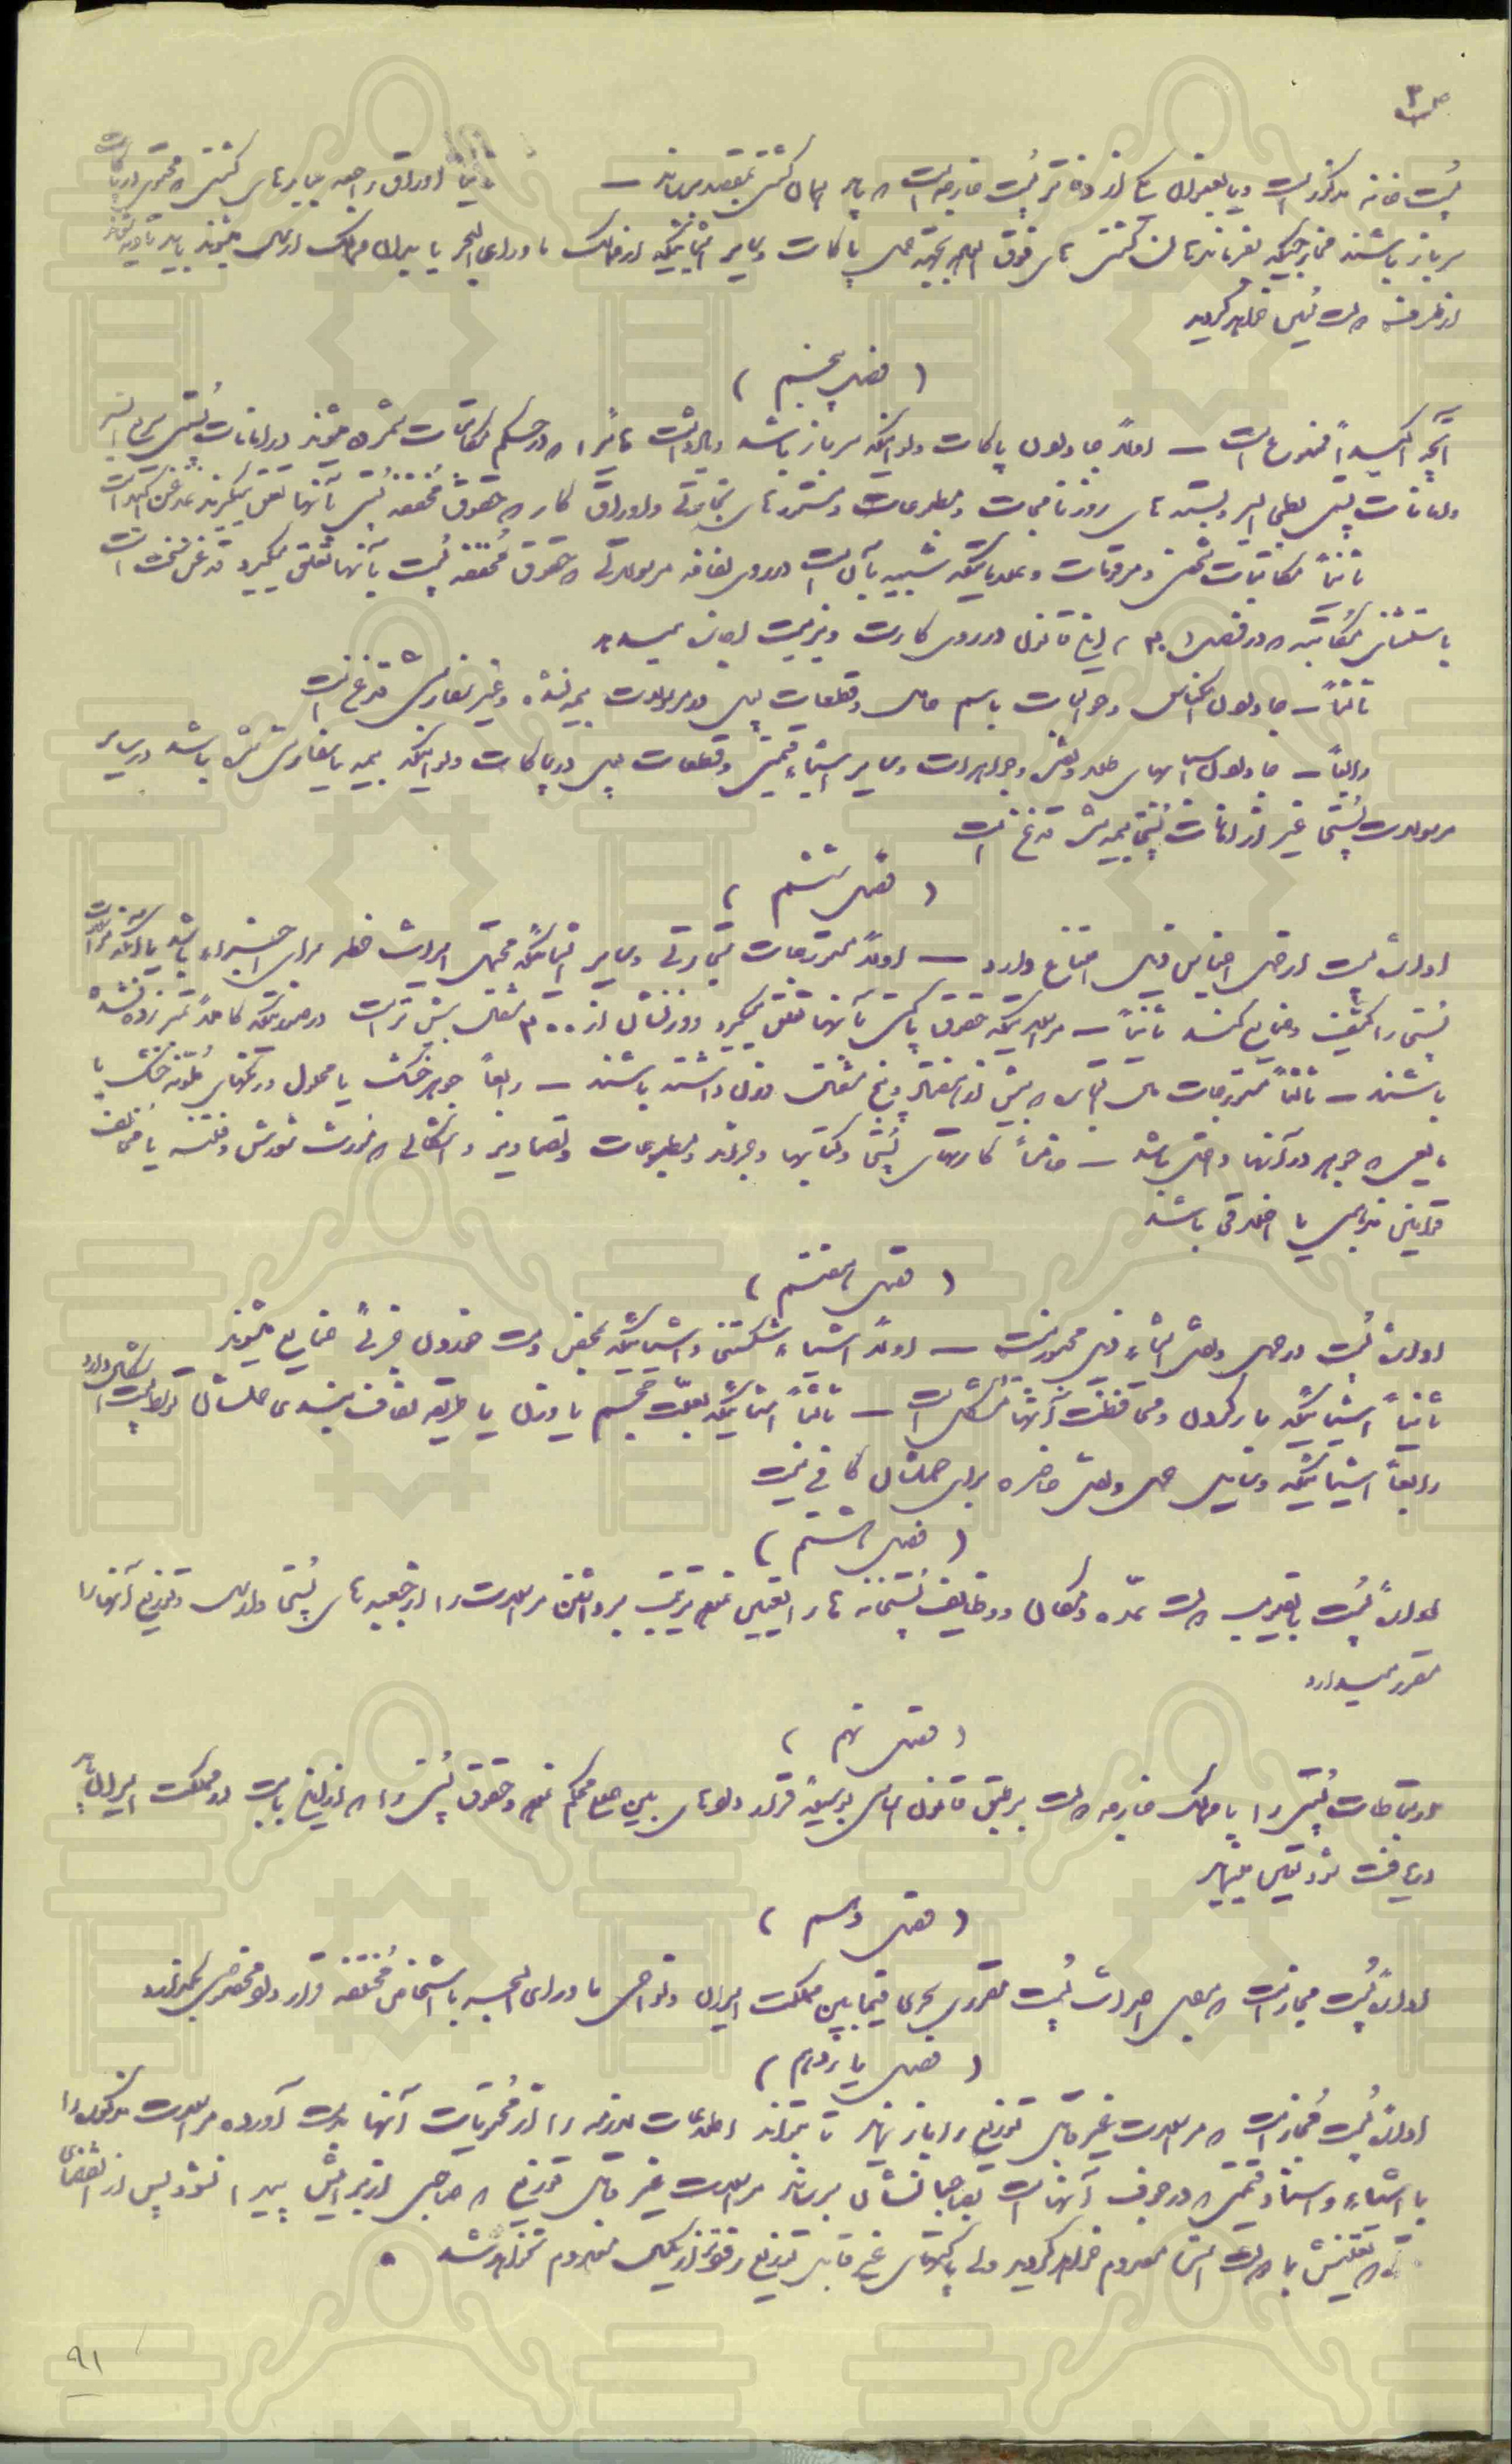 ص ۳
پست خانه مذکور است و یا بعنوان یکی از دفاتر پست خارجه است که باید همان کشتی بمقصد برساند — ثانیاً اوراق راجعه ببارهای کشتی که محتوی در پاکات
سرباز باشند مخارجیکه بفرماندهان کشتی های فوق الذکر بجهة حمل پاکات و سایر اشیائیکه از ممالک ماوراء البحر یا بیرون ممالک ارسال میشوند باید تادیه
از طرف دولت تعیین خواهد گردید
( فصل پنجم )
آنچه اکیداً ممنوع است — اولاً جا دادن پاکات ولو اینکه سرباز باشد و یادداشت هائی را که در حکم مکاتبات شمرده میشوند در امانات پستی
و امانات پستی بطی السیر و بسته های روزنامجات و مطبوعات و مستوره های تجارتی و اوراق کار که حقوق مخففه پستی بآنها تعلق میگیرند
ثانیاً مکاتبات شخصی و مرقومات و علاماتیکه شبیه بآن است در روی لفافه مرسولاتی که حقوق مخففه پست بآنها تعلق میگیرد قدغن سخت است
باستثنای مکاتبه که در فصل ( ۳۰ ) این قانون در روی کارت ویزیت اجازه میدهد
ثالثاً — جا دادن اسکناس و حوالجات باسم حامل و قطعات پول در مرسولات بیمه نشده و غیر سفارشی قدغن است
رابعاً — جا دادن اسبابهای طلا و نقره و جواهرات و سایر اشیاء قیمتی و قطعات پول در پاکات ولو اینکه بیمه یا سفارشی شده باشد در سایر
مرسولات پستی غیر از امانات پستی بیمه شده قدغن است
( فصل ششم )
اداره پست از حمل اجناس ذیل امتناع دارد — اولاً ممزوجات تجارتی و سایر اشیائیکه محتمل ایراث خطر برای اجزاء باشد یا آنکه مراسلات
پستی را کثیف و ضایع کند ثانیاً — مراسلاتیکه حقوق پاکتی بآنها تعلق میگیرد و وزنشان از ۴۰۰ مثقال بیش تر است در صورتیکه کاملاً تمبر زده نشده
باشند — ثالثاً ممزوجات مال التجاره که بیش از هفتاد و پنج مثقال وزن داشته باشند — رابعاً جوهر خشک یا محلول و رنگهای ملونه خشک یا
مایعی که جوهر در آنها داخل باشد — خامساً کارتهای پستی و کتابها و جراید و مطبوعات و تصاویر و اشکالی که مورث شورش و فتنه یا مخالف
قوانین مذهبی یا اخلاقی باشد
( فصل هفتم )
اداره پست در حمل و نقل اشیاء ذیل مجبور نیست — اولاً اشیاء شکستنی و اشیائیکه بمحض دست خوردن جزئی ضایع میشوند —
ثانیاً اشیائیکه بار کردن و محافظت آنها مشکل است — ثالثاً اشیائیکه بعلت حجم یا وزن یا طریقه لفاف بندی حملشان اشکال دارد
رابعاً اشیائیکه وسایل حمل و نقل حاضره برای حملشان کافی نیست
( فصل هشتم )
اداره پست بتصویب دولت عده و مکان و وظایف پستخانه ها را تعیین نموده ترتیب برداشتن مراسلات را از جعبه های پستی و ارسال و توزیع آنها را
مقرر میدارد
( فصل نهم )
ارتباطات پستی را با ممالک خارجه دولت بر طبق قانون اساسی بوسیله قرارداد های بین المللی محکم نموده و حقوق پستی را که از این بابت در مملکت ایران باید
دریافت شود تعیین مینماید
( فصل دهم )
اداره پست مجاز است که برای اجرای پست مقرری بحری فیمابین مملکت ایران و نواحی ماوراء البحر با اشخاص مختلفه قرارداد مخصوص بگذارد
( فصل یازدهم )
اداره پست مجاز است که مراسلات غیر قابل توزیع را باز نماید تا بتواند اطلاعات لازمه را از محتویات آنها بدست آورده مراسلات مذکوره را
با اشیاء و اسناد قیمتی که در جوف آنها است بصاحبانشان برساند مراسلات غیر قابل توزیع که صاحبی از برایش پیدا نشود پس از انقضای
که تعیینش با دولت است معدوم خواهد گردید ولی پاکتهای غیر قابل توزیع رفوزه از یکسال معدوم نخواهد شد
۹۱